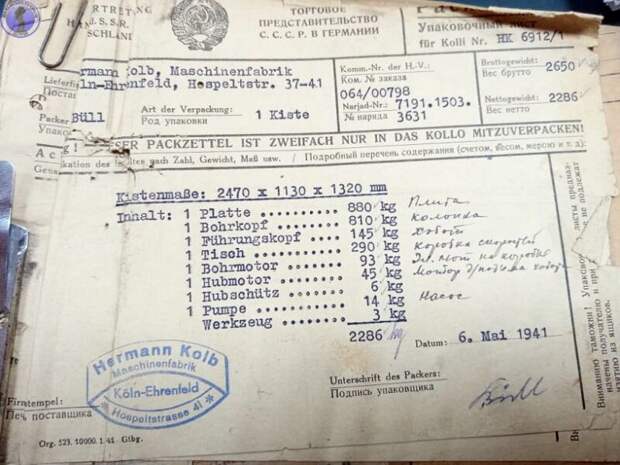 RTRETUNG
d. S.S.R.
SCHLANI
ТОРГОВОЕ
ПРЕДСТАВИТЕЛЬСТВО
С. С. С. Р. В ГЕРМАНИИ
Упаковочный лист
für Kolli Nr. HK 6912/1
Lieferfi
Поставщ
ermann Kolb, Maschinenfabrik
öln-Ehrenfeld, Hospeltstr. 37-41
Komm.-Nr. der H.-V.:
Ком. № заказа
064/00798
Bruttogewicht: 2650
Вес брутто
Packer
Упаков
Büll
Art der Verpackung:
Род упаковки
1 Kiste
Narjad-Nr.: 7191.1503.
№ наряда 3631
Nettogewicht: 2286
Вес нетто
SER PACKZETTEL IST ZWEIFACH NUR IN DAS KOLLO MITZUVERPACKEN!
nach Zahl, Gewicht, Maß usw. / Подробный перечень содержания (счетом, весом, мерою и т. д.)
Kistenmaße: 2470 x 1130 x 1320 mm
Inhalt: 1 Platte .......... 880 kg Плита
1 Bohrkopf ......... 810 kg колонка
1 Führungskopf ..... 145 kg хобот
1 Tisch ............ 290 kg коробка скоростей
1 Bohrmotor ........ 93 kg Эл. мот на коробке
1 Hubmotor ......... 45 kg Мотор
1 Hubschütz ........ 6 kg
1 Pumpe ............ 14 kg Насос
Werkzeug ......... 3 kg
2286 kg
Datum: 6. Mai 1941
Hermann Kolb
Maschinenfabrik
Köln-Ehrenfeld
Hospeltstrasse 41
Firmstempel:
Печ поставщика
Unterschrift des Packers:
Подпись упаковщика
Büll
Org. 523. 10000. 1. 41. Gtbg.
Вниманию таможни! Упаковоч
листы предназ